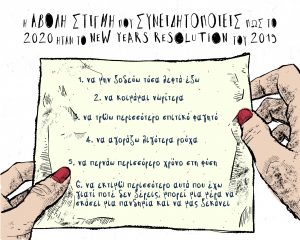 Η ΑΒΟΛΗ ΣΤΙΓΜΗ ΠΟΥ ΣΥΝΕΙΔΗΤΟΠΟΙΕΙΣ ΠΩΣ ΤΟ
2020 ΗΤΑΝ ΤΟ NEW YEARS RESOLUTION ΤΟΥ 2019
1. να μην ξοδεύω τόσα λεφτά έξω
2. να κοιμάμαι νωρίτερα
3. να τρώω περισσότερο σπιτικό φαγητό
4. να αγοράζω λιγότερα ρούχα
5. να περνάω περισσότερο χρόνο στη φύση
6. να εκτιμώ περισσότερο αυτά που έχω
γιατί ποτέ δεν ξέρεις, μπορεί μια μέρα να
σκάσει μια πανδημία και να μας ξεκάνει